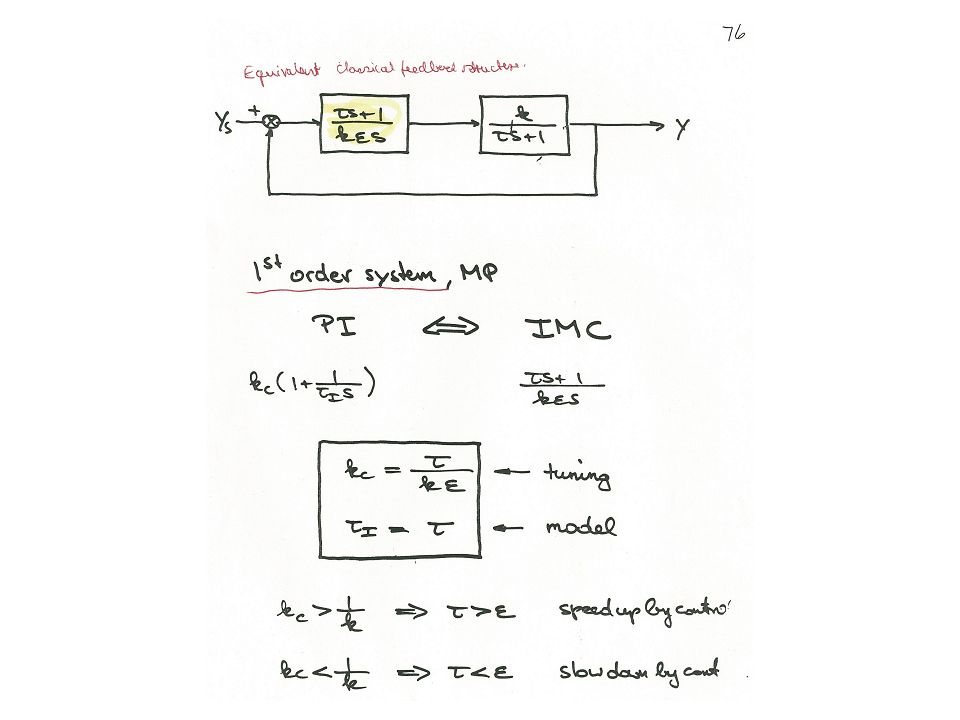 76
Equivalent classical feedback structure.
Ys + τs+1 / kεs k / τs+1 Y
1st order system, MP
PI ⟺ IMC
kc(1+ 1/τIs) τs+1 / kεs
kc = τ / kε ← tuning
τI = τ ← model
kc > 1/k ⇒ τ > ε speed up by contro
kc < 1/k ⇒ τ < ε slow down by cont